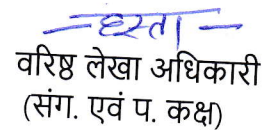 -हस्ता-
वरिष्ठ लेखा अधिकारी
(संग. एवं प. कक्ष)